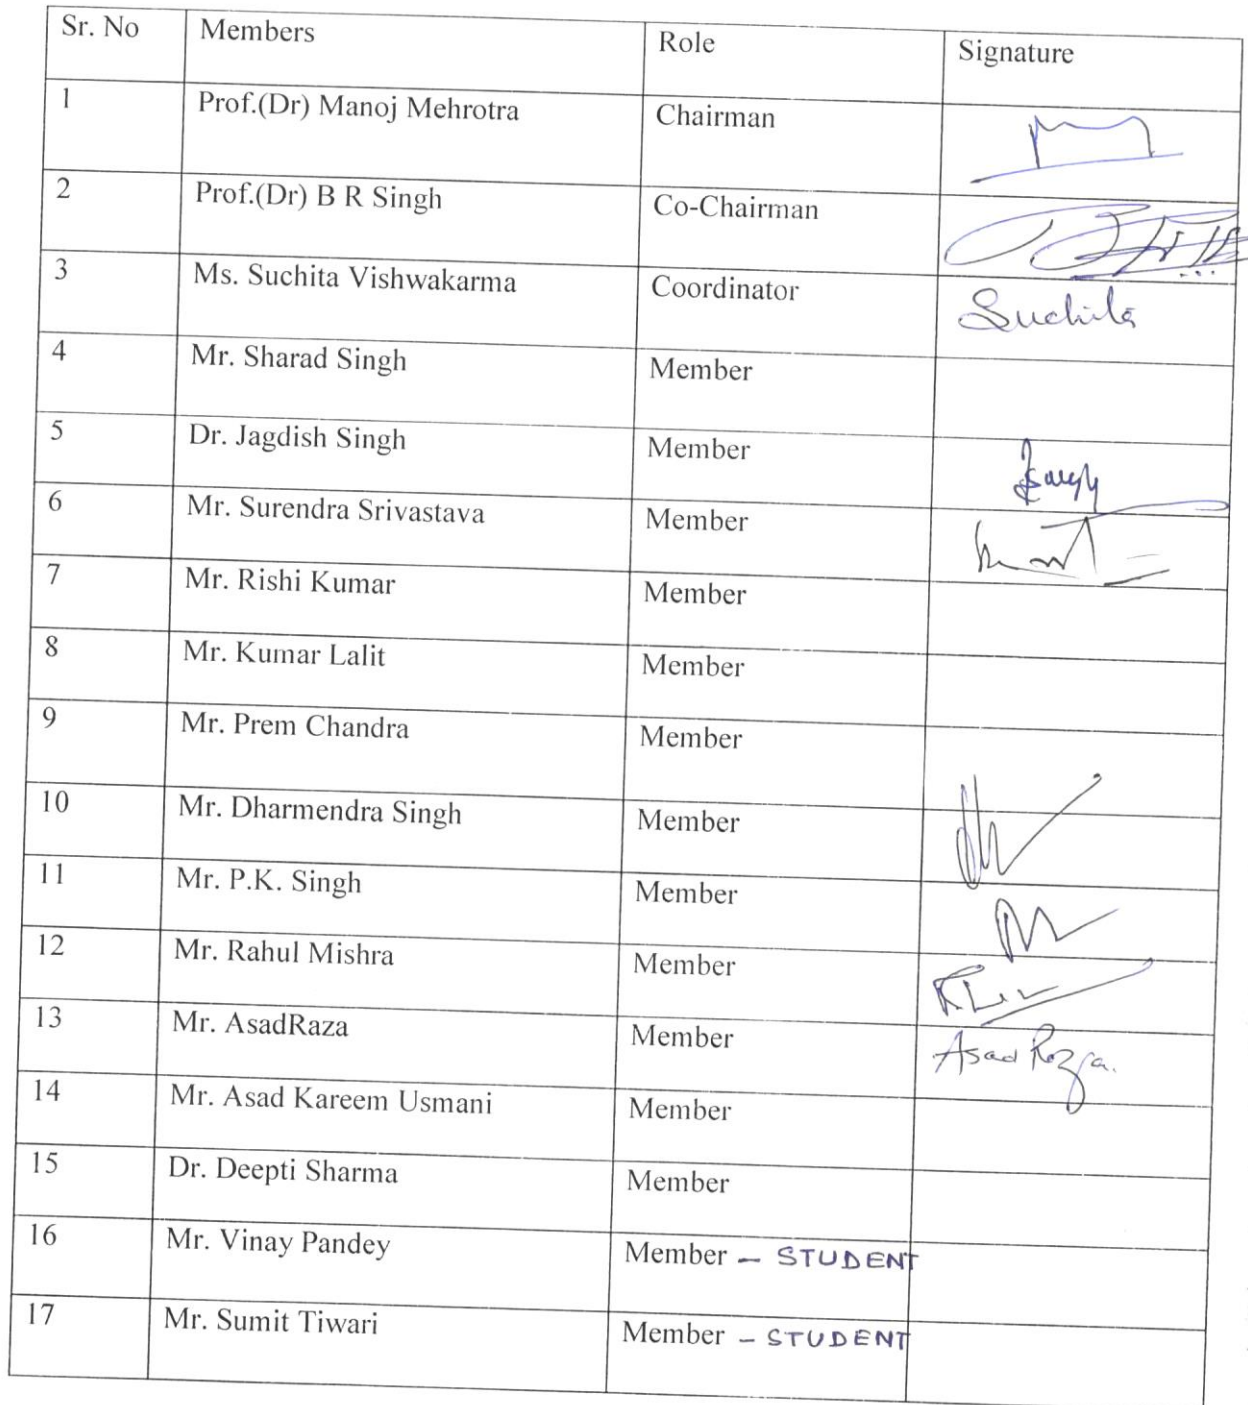 Sr. No Members Role Signature
1 Prof.(Dr) Manoj Mehrotra Chairman
2 Prof.(Dr) B R Singh Co-Chairman
3 Ms. Suchita Vishwakarma Coordinator Suchita
4 Mr. Sharad Singh Member
5 Dr. Jagdish Singh Member
6 Mr. Surendra Srivastava Member
7 Mr. Rishi Kumar Member
8 Mr. Kumar Lalit Member
9 Mr. Prem Chandra Member
10 Mr. Dharmendra Singh Member
11 Mr. P.K. Singh Member
12 Mr. Rahul Mishra Member
13 Mr. AsadRaza Member Asad Raza.
14 Mr. Asad Kareem Usmani Member
15 Dr. Deepti Sharma Member
16 Mr. Vinay Pandey Member - STUDENT
17 Mr. Sumit Tiwari Member - STUDENT